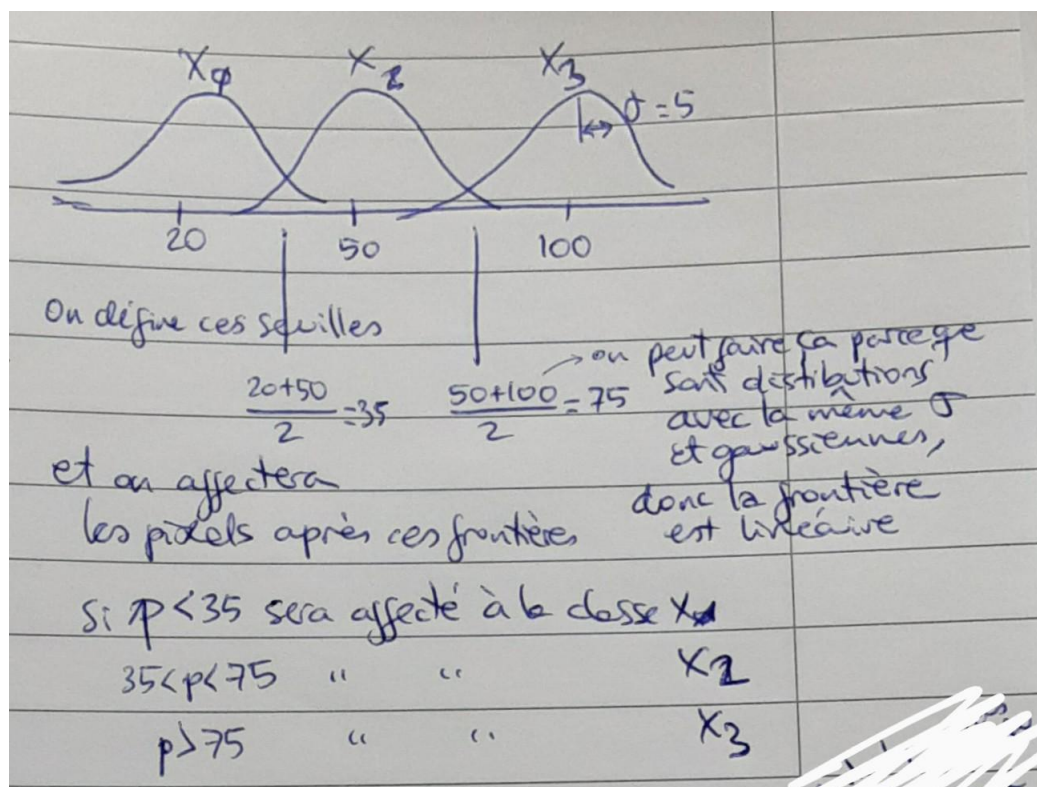 X1 X2 X3
σ=5
20 50 100
On défine ces seuilles
20+50/2 =35 50+100/2 =75
→ on peut faire ça parceqe
sont distibutions
avec la même σ
et gaussiennes,
donc la frontière
est linéaire
et on affectera
les pixels après ces frontières
si p<35 sera affecté à la classe X1
35<p<75 " " X2
p>75 " " X3